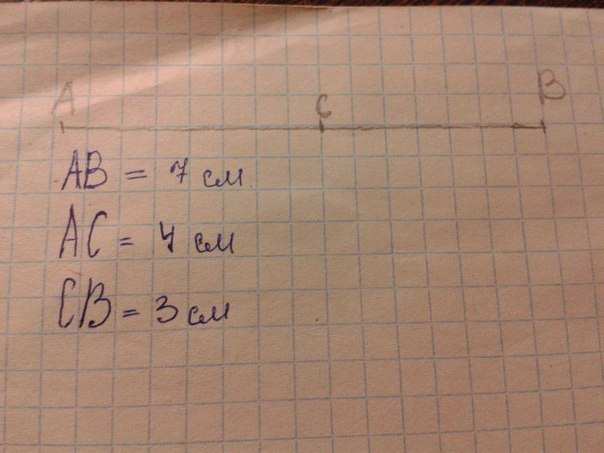 A C B
AB = 7 см
AC = 4 см
CB = 3 см